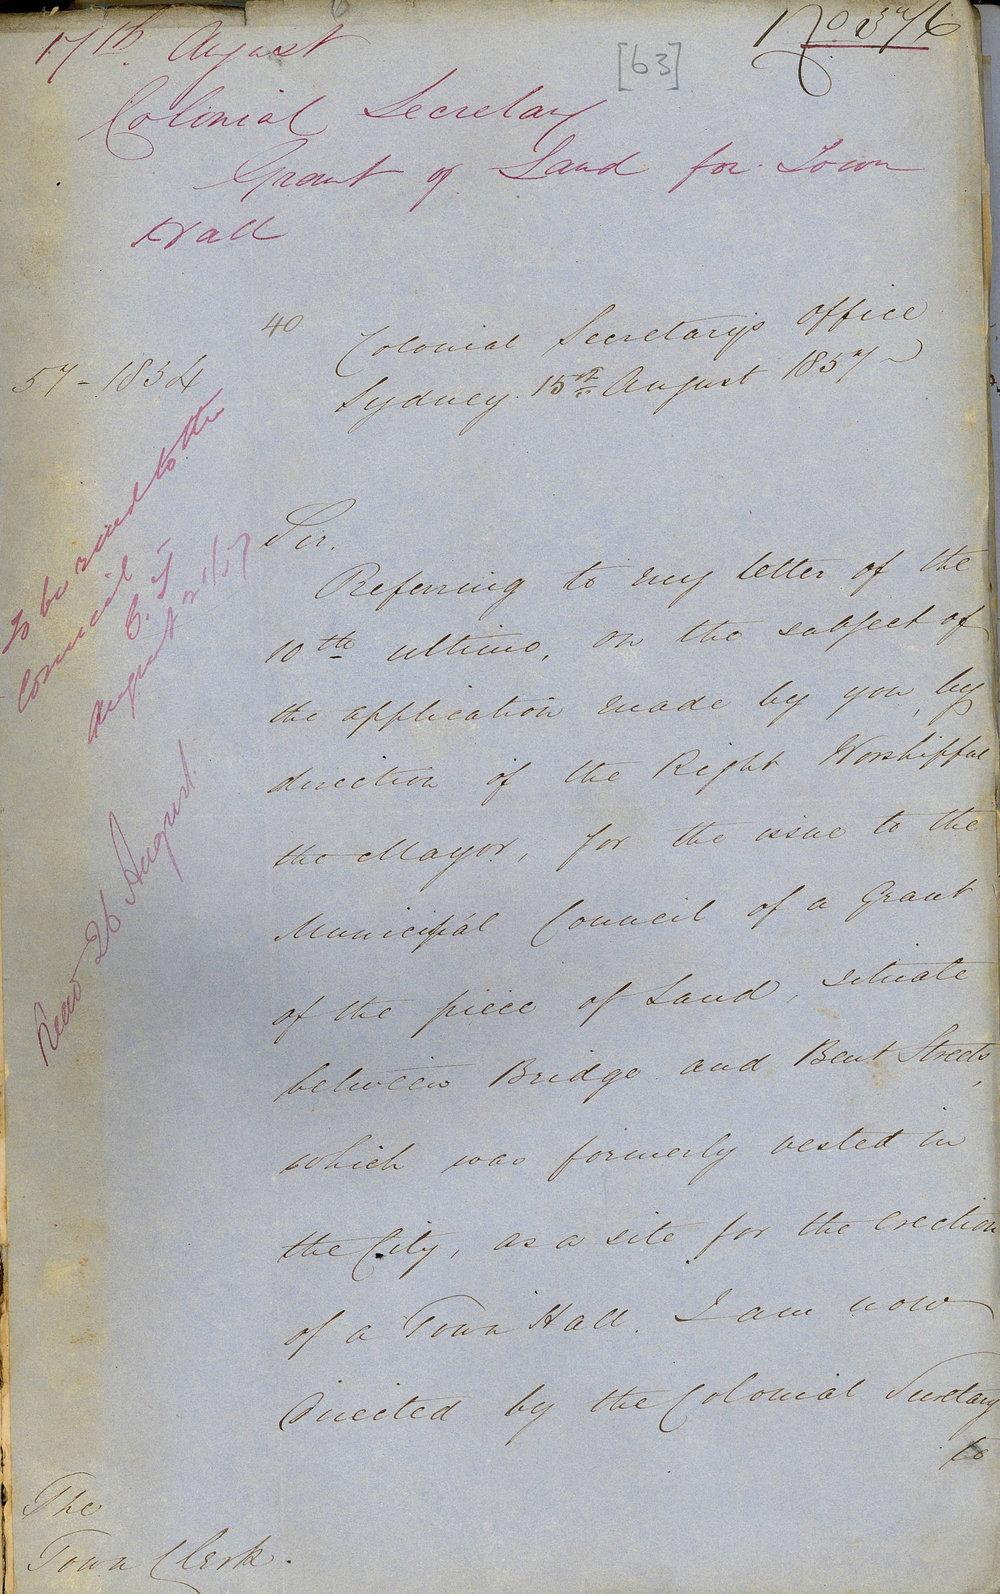 17th August
No 376
[63]
Colonial Secretary
Grant of Land for Town
Hall
40
Colonial Secretary's Office
57-1834
Sydney 15th August 1857
To be read to the
Council
August 21/57
Read 26 August.
Sir,
Referring to my letter of the
10th ultimo, on the subject of
the application made by you, by
direction of the Right Worshipful
the Mayor, for the issue to the
Municipal Council of a Grant
of the piece of Land, situate
between Bridge and Bent Streets,
which was formerly vested in
the City, as a site for the erection
of a Town Hall. I am now
directed by the Colonial Secretary
to
The
Town Clerk.